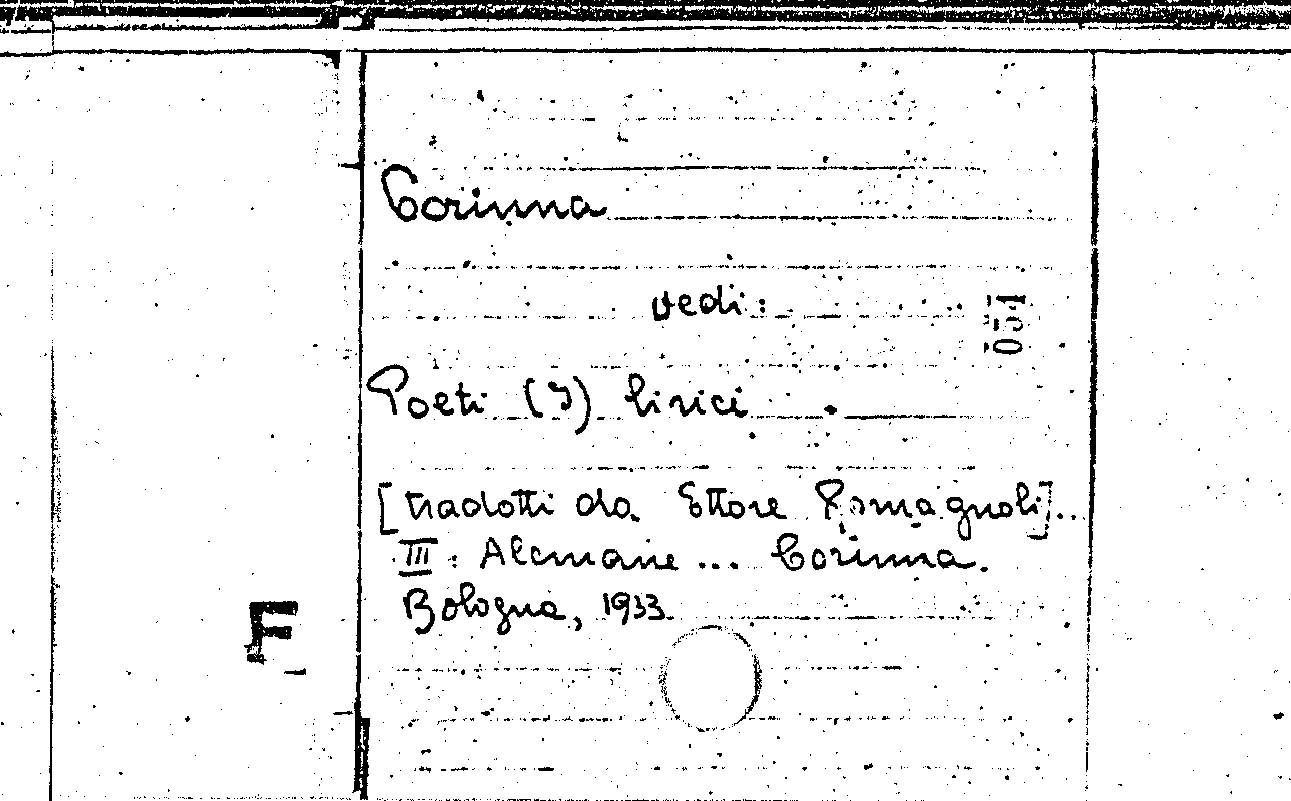 Corinna
vedi:
051
Poeti (I) lirici
[tradotti da Ettore Romagnoli]..
III: Alcmane ... Corinna.
Bologna, 1933.
F